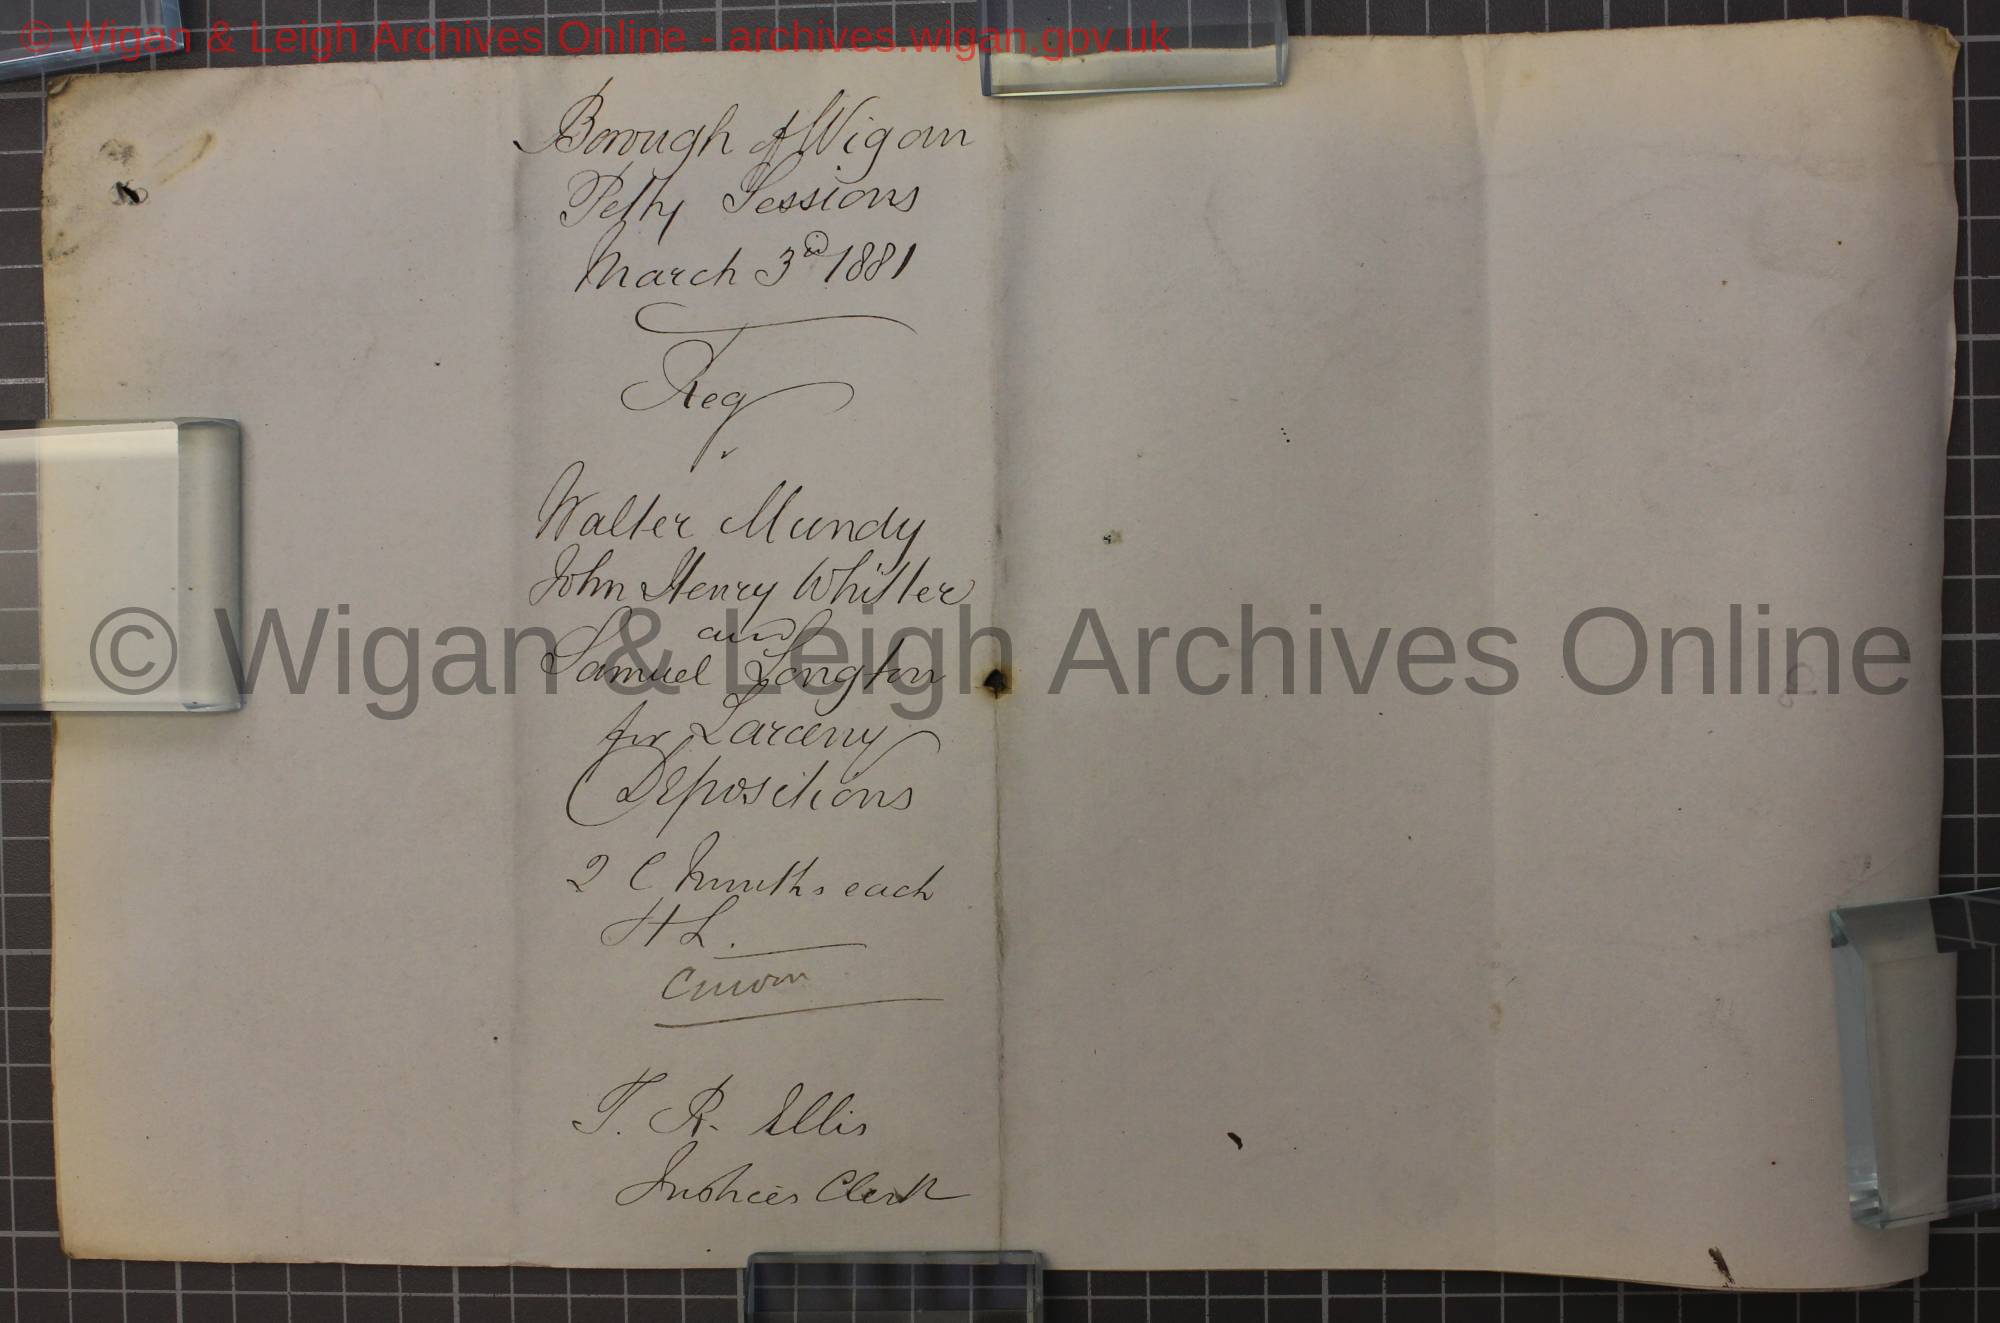 © Wigan & Leigh Archives Online - archives.wigan.gov.uk
Borough of Wigan
Petty Sessions
March 3rd 1881
Reg
v
Walter Mundy
John Henry Whitter
and
Samuel Longton
for Larceny
Depositions
2 C Months each
H L.
T. R. Ellis
Justices Clerk
© Wigan & Leigh Archives Online